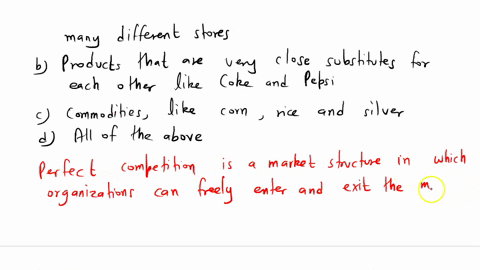 many different stores
b) Products that are very close substitutes for
each other like Coke and Pepsi
c) Commodities, like corn, rice and silver
d) All of the above
Perfect competition is a market structure in which
organizations can freely enter and exit the m